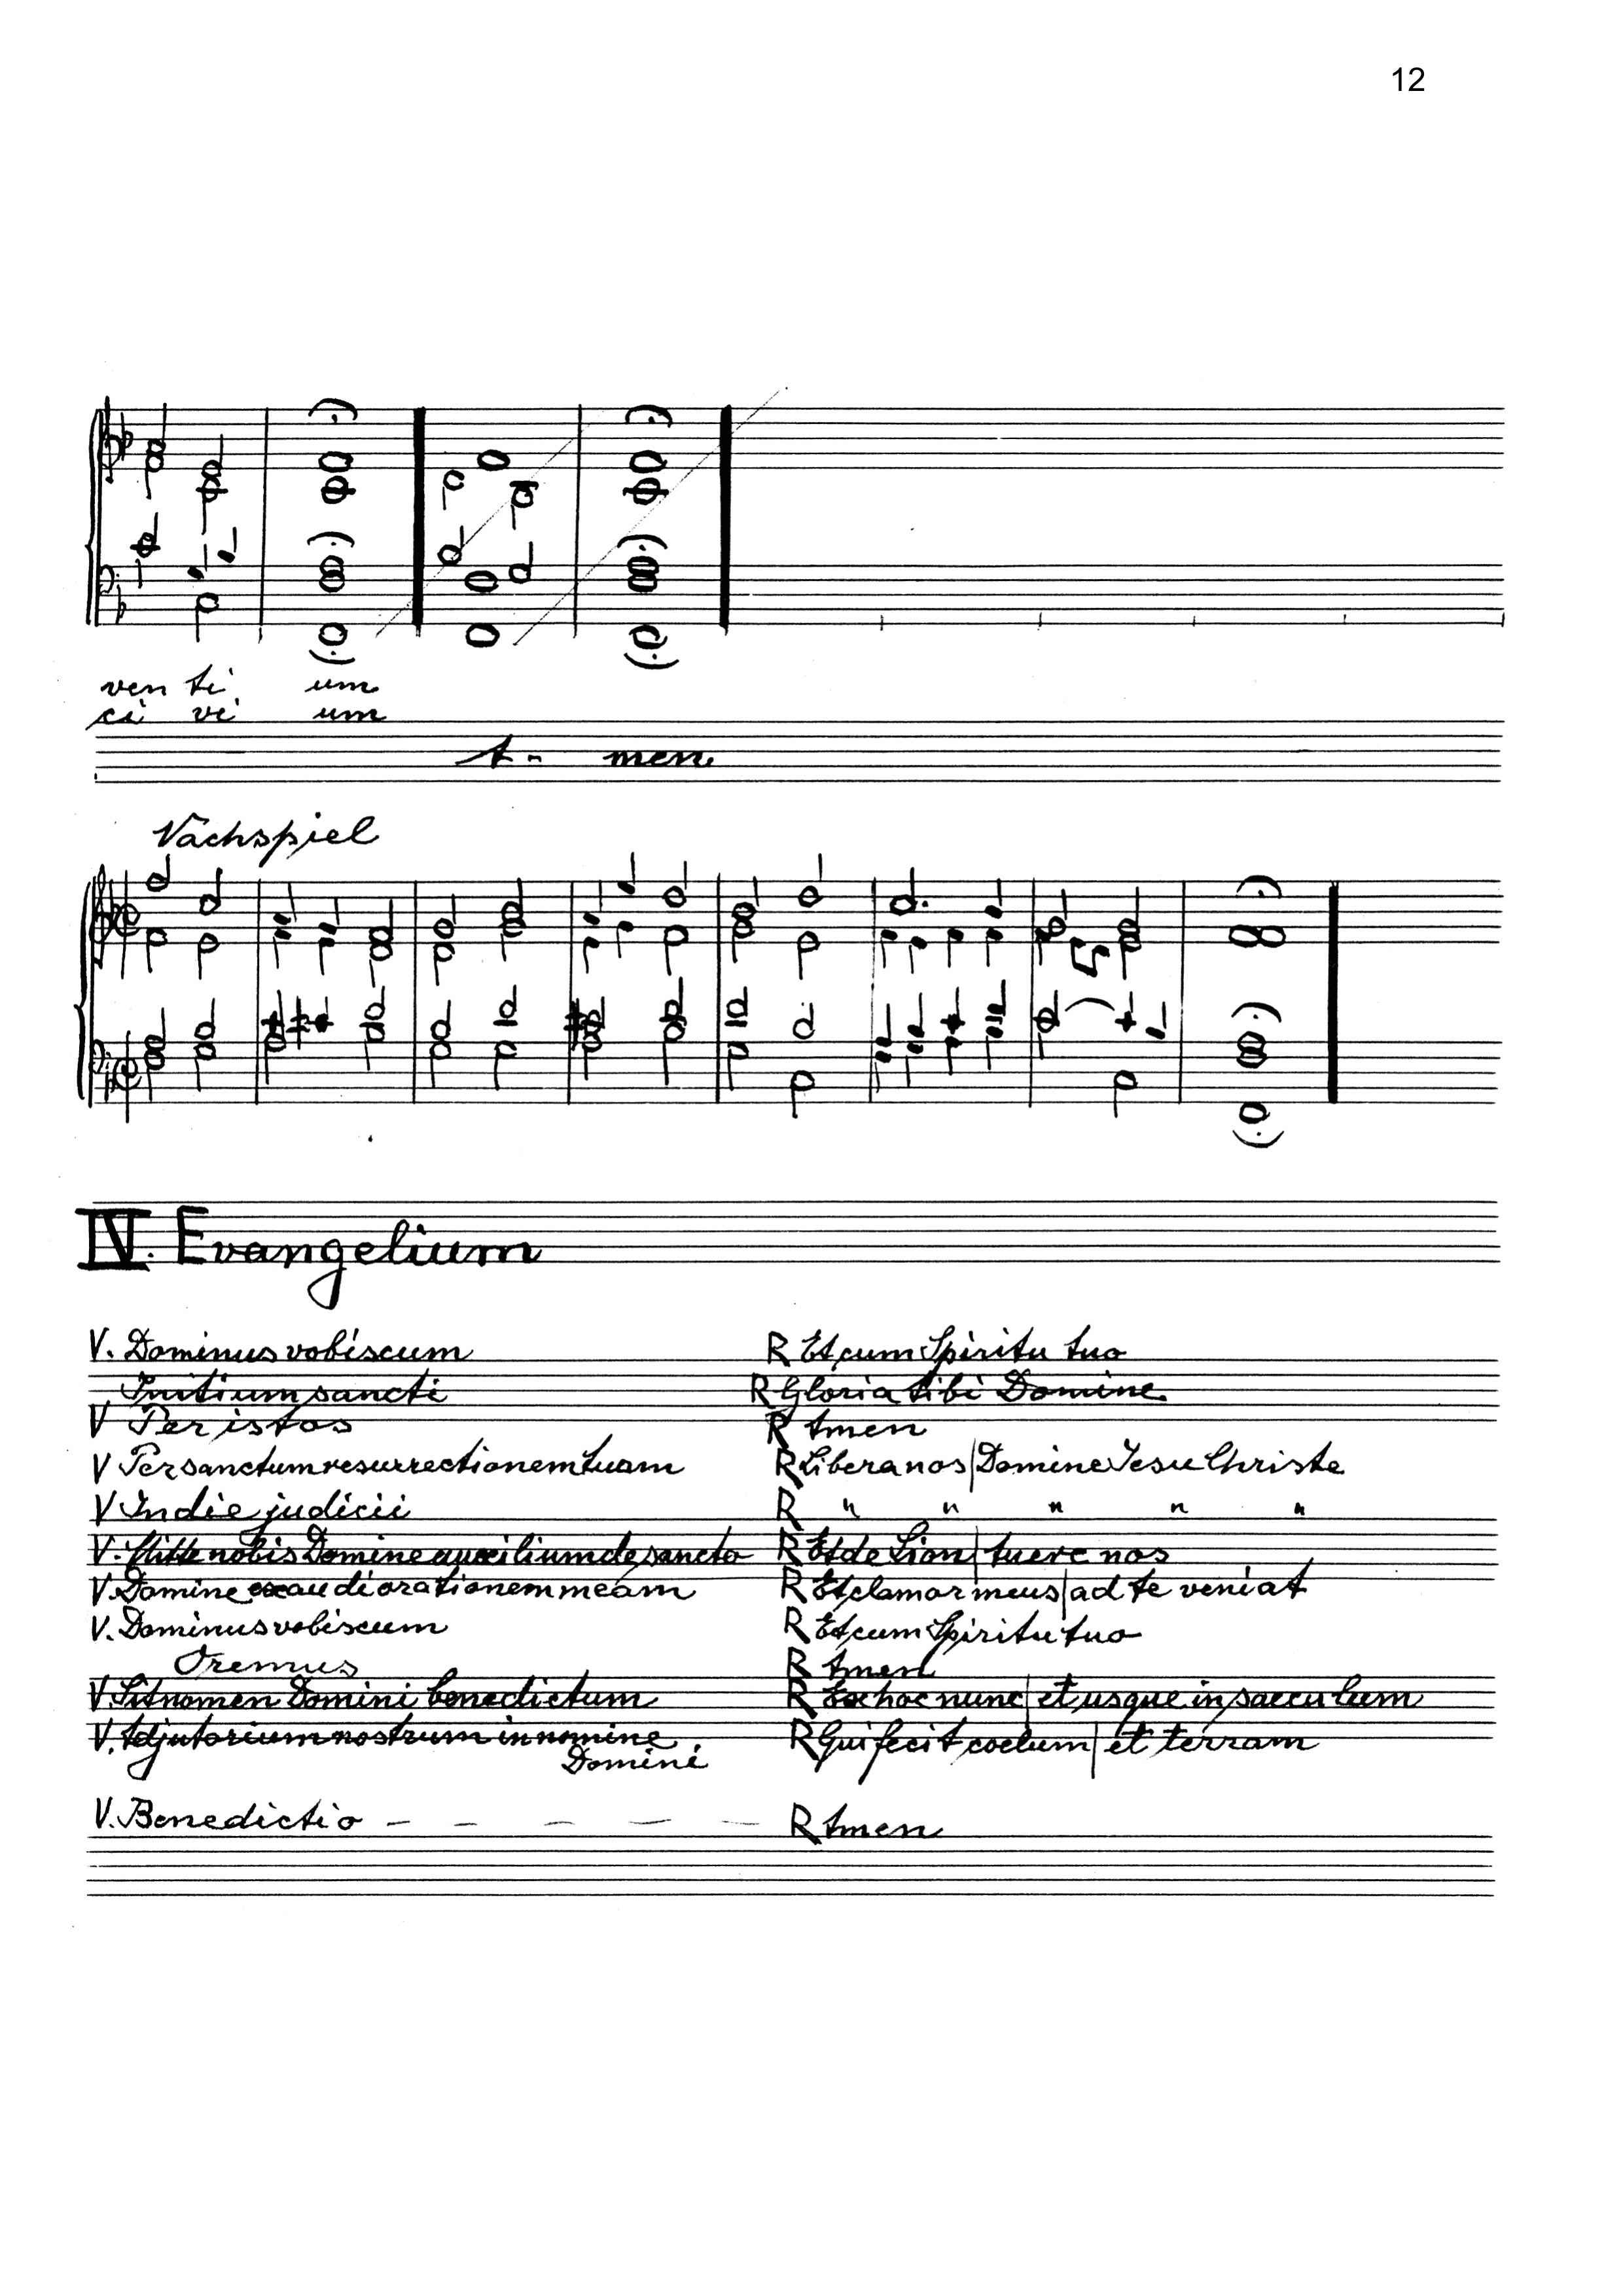 12
ven ti um
ci vi um
A - men
Nachspiel
IV. Evangelium
V. Dominus vobiscum R Et cum Spiritu tuo
Initium sancti R Gloria tibi Domine
V Per istos R Amen
V Per sanctum resurrectionem tuam R Libera nos | Domine Jesu Christe
V In die judicii R " " " " "
V. Mitte nobis Domine auxilium de sancto R Et de Sion | tuere nos
V. Domine exaudi orationem meam R Et clamor meus | ad te veniat
V. Dominus vobiscum R Et cum Spiritu tuo
Oremus R Amen
V. Sit nomen Domini benedictum R Ex hoc nunc | et usque in saeculum
V. Adjutorium nostrum in nomine R Qui fecit coelum | et terram
Domini
V. Benedictio - - - - - R Amen